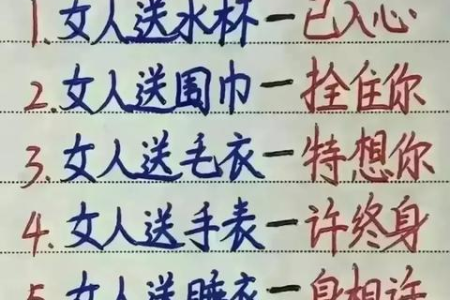 1. 女人送水杯一已入心
2. 女人送围巾一拴住你
3. 女人送毛衣一特想你
4. 女人送手表一许终身
5. 女人送睡衣一身相许